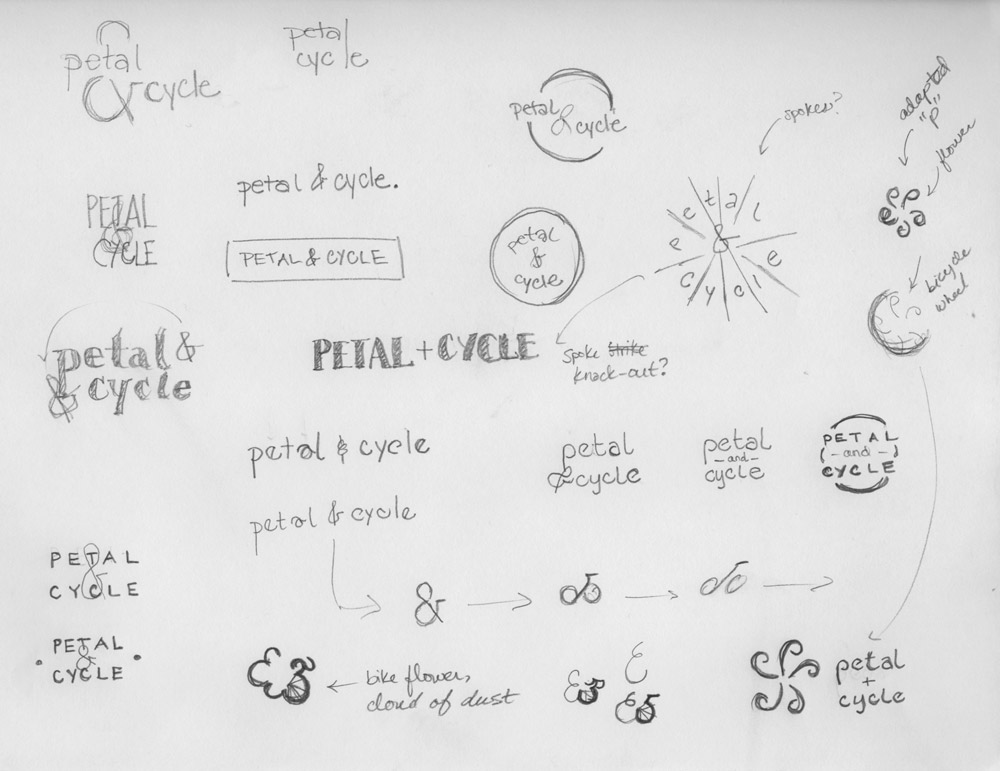 petal
& cycle
petal
cycle
petal & cycle
spokes?
adapted
"P"
flower
PETAL
&
CYCLE
petal & cycle.
PETAL & CYCLE
petal
&
cycle
petal
&
cycle
bicycle
wheel
petal &
& cycle
PETAL + CYCLE
spoke strike
knack-out?
petal & cycle
petal
& cycle
petal
-and-
cycle
PETAL
(-and-)
CYCLE
petal & cycle
PETAL
&
CYCLE
&
PETAL
&
CYCLE
bike flower,
cloud of dust
petal
+
cycle